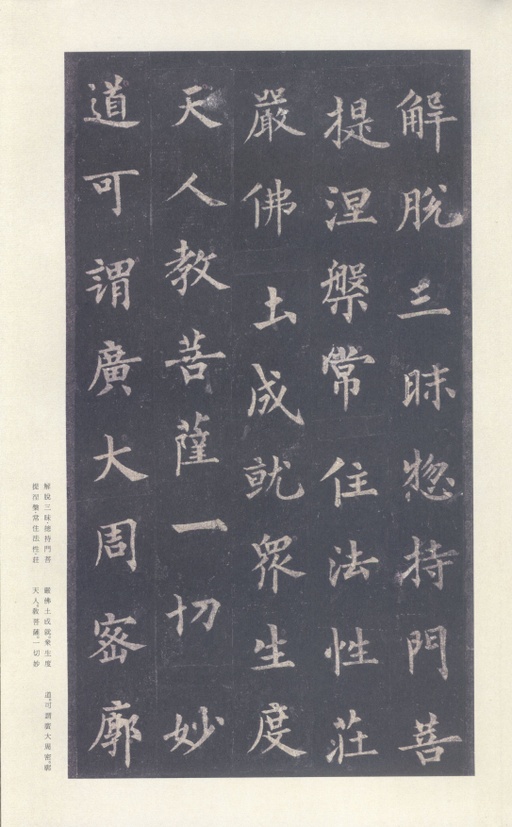 解脫三昧惣持門菩
提涅槃常住法性莊
嚴佛土成就眾生度
天人教菩薩一切妙
道可謂廣大周密廓
解脫三昧惣持門菩
提涅槃常住法性莊
嚴佛土成就眾生度
天人教菩薩一切妙
道可謂廣大周密廓